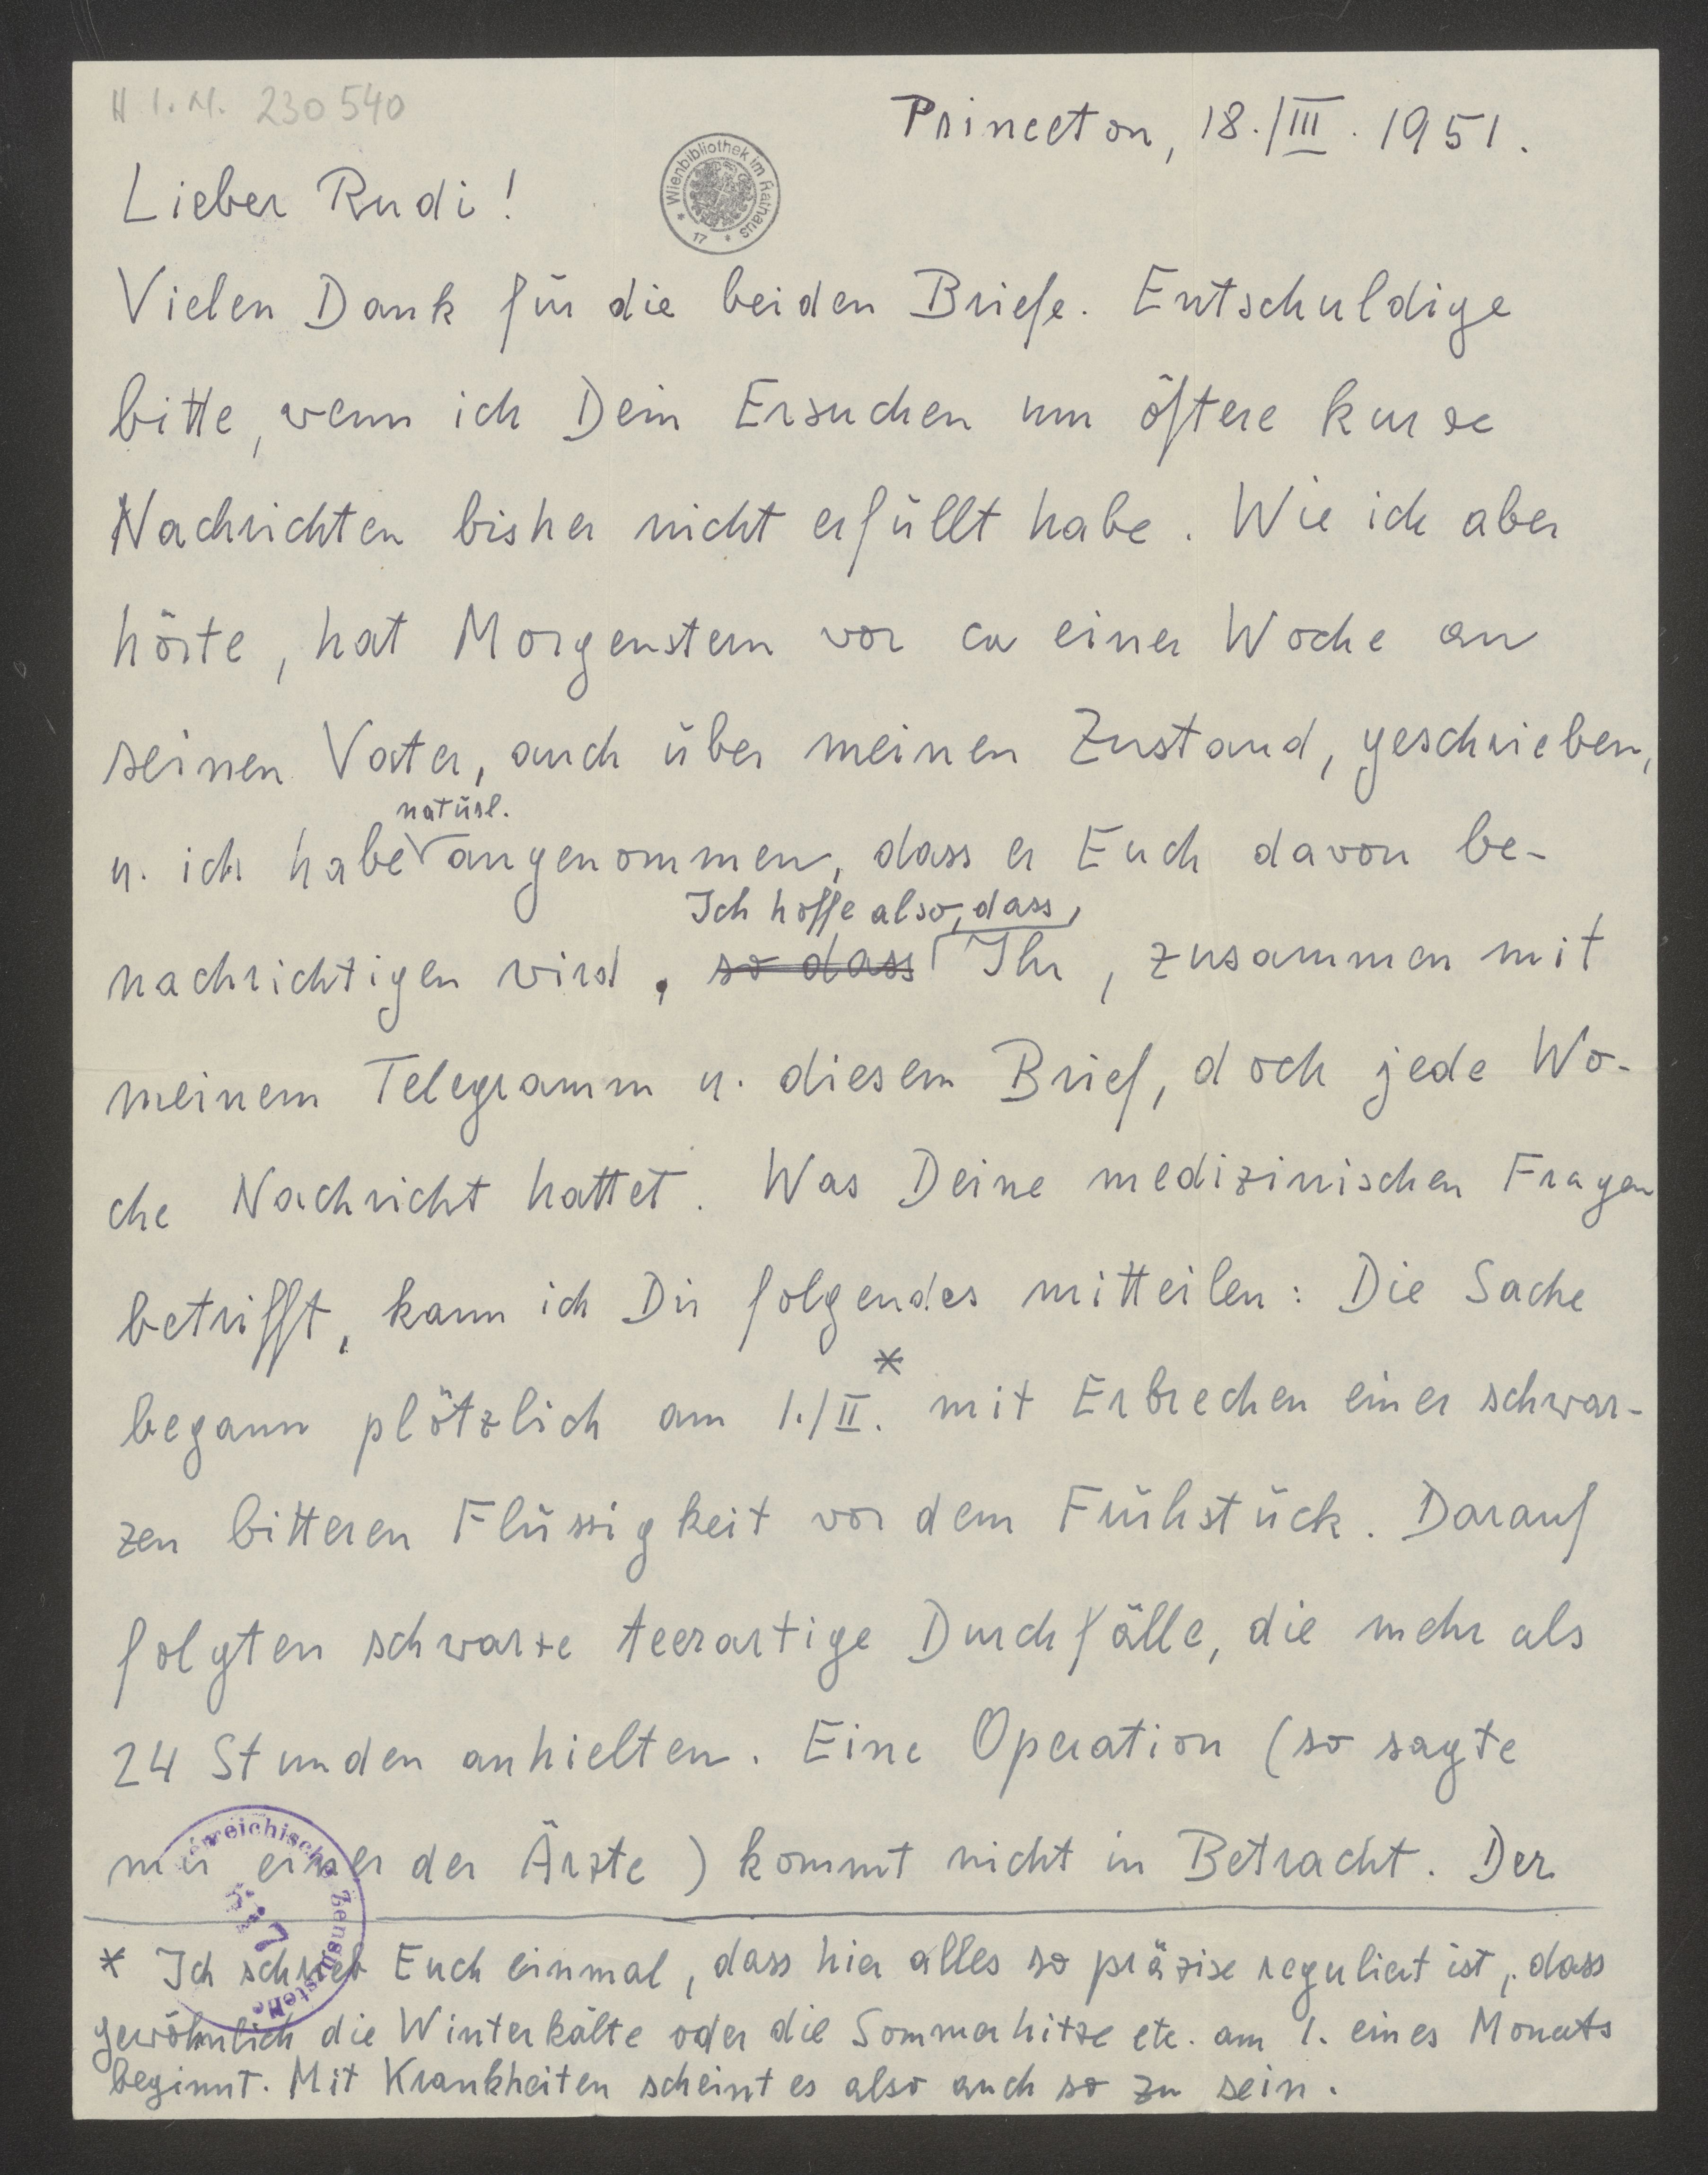 H I.N. 230540
Princeton, 18./III. 1951.
Wienbibliothek im Rathaus
* 17 *
Lieber Rudi!
Vielen Dank für die beiden Briefe. Entschuldige
bitte, wenn ich Dein Ersuchen um öftere kurze
Nachrichten bisher nicht erfüllt habe. Wie ich aber
hörte, hat Morgenstern vor ca einer Woche an
seinen Vater, auch über meinen Zustand, geschrieben,
natürl.
u. ich habe angenommen, dass er Euch davon be-
Ich hoffe also, dass
nachrichtigen wird. so dass Ihr, zusammen mit
meinem Telegramm u. diesem Brief, doch jede Wo-
che Nachricht hattet. Was Deine medizinischen Fragen
betrifft, kann ich Dir folgendes mitteilen: Die Sache
begann plötzlich am 1./II.* mit Erbrechen einer schwar-
zen bitteren Flüssigkeit vor dem Frühstück. Darauf
folgten schwarze teerartige Durchfälle, die mehr als
24 Stunden anhielten. Eine Operation (so sagte
mir einer der Ärzte) kommt nicht in Betracht. Der
* Ich schrieb Euch einmal, dass hier alles so präzise reguliert ist, dass
gewöhnlich die Winterkälte oder die Sommerhitze etc. am 1. eines Monats
beginnt. Mit Krankheiten scheint es also auch so zu sein.
Zensurstelle